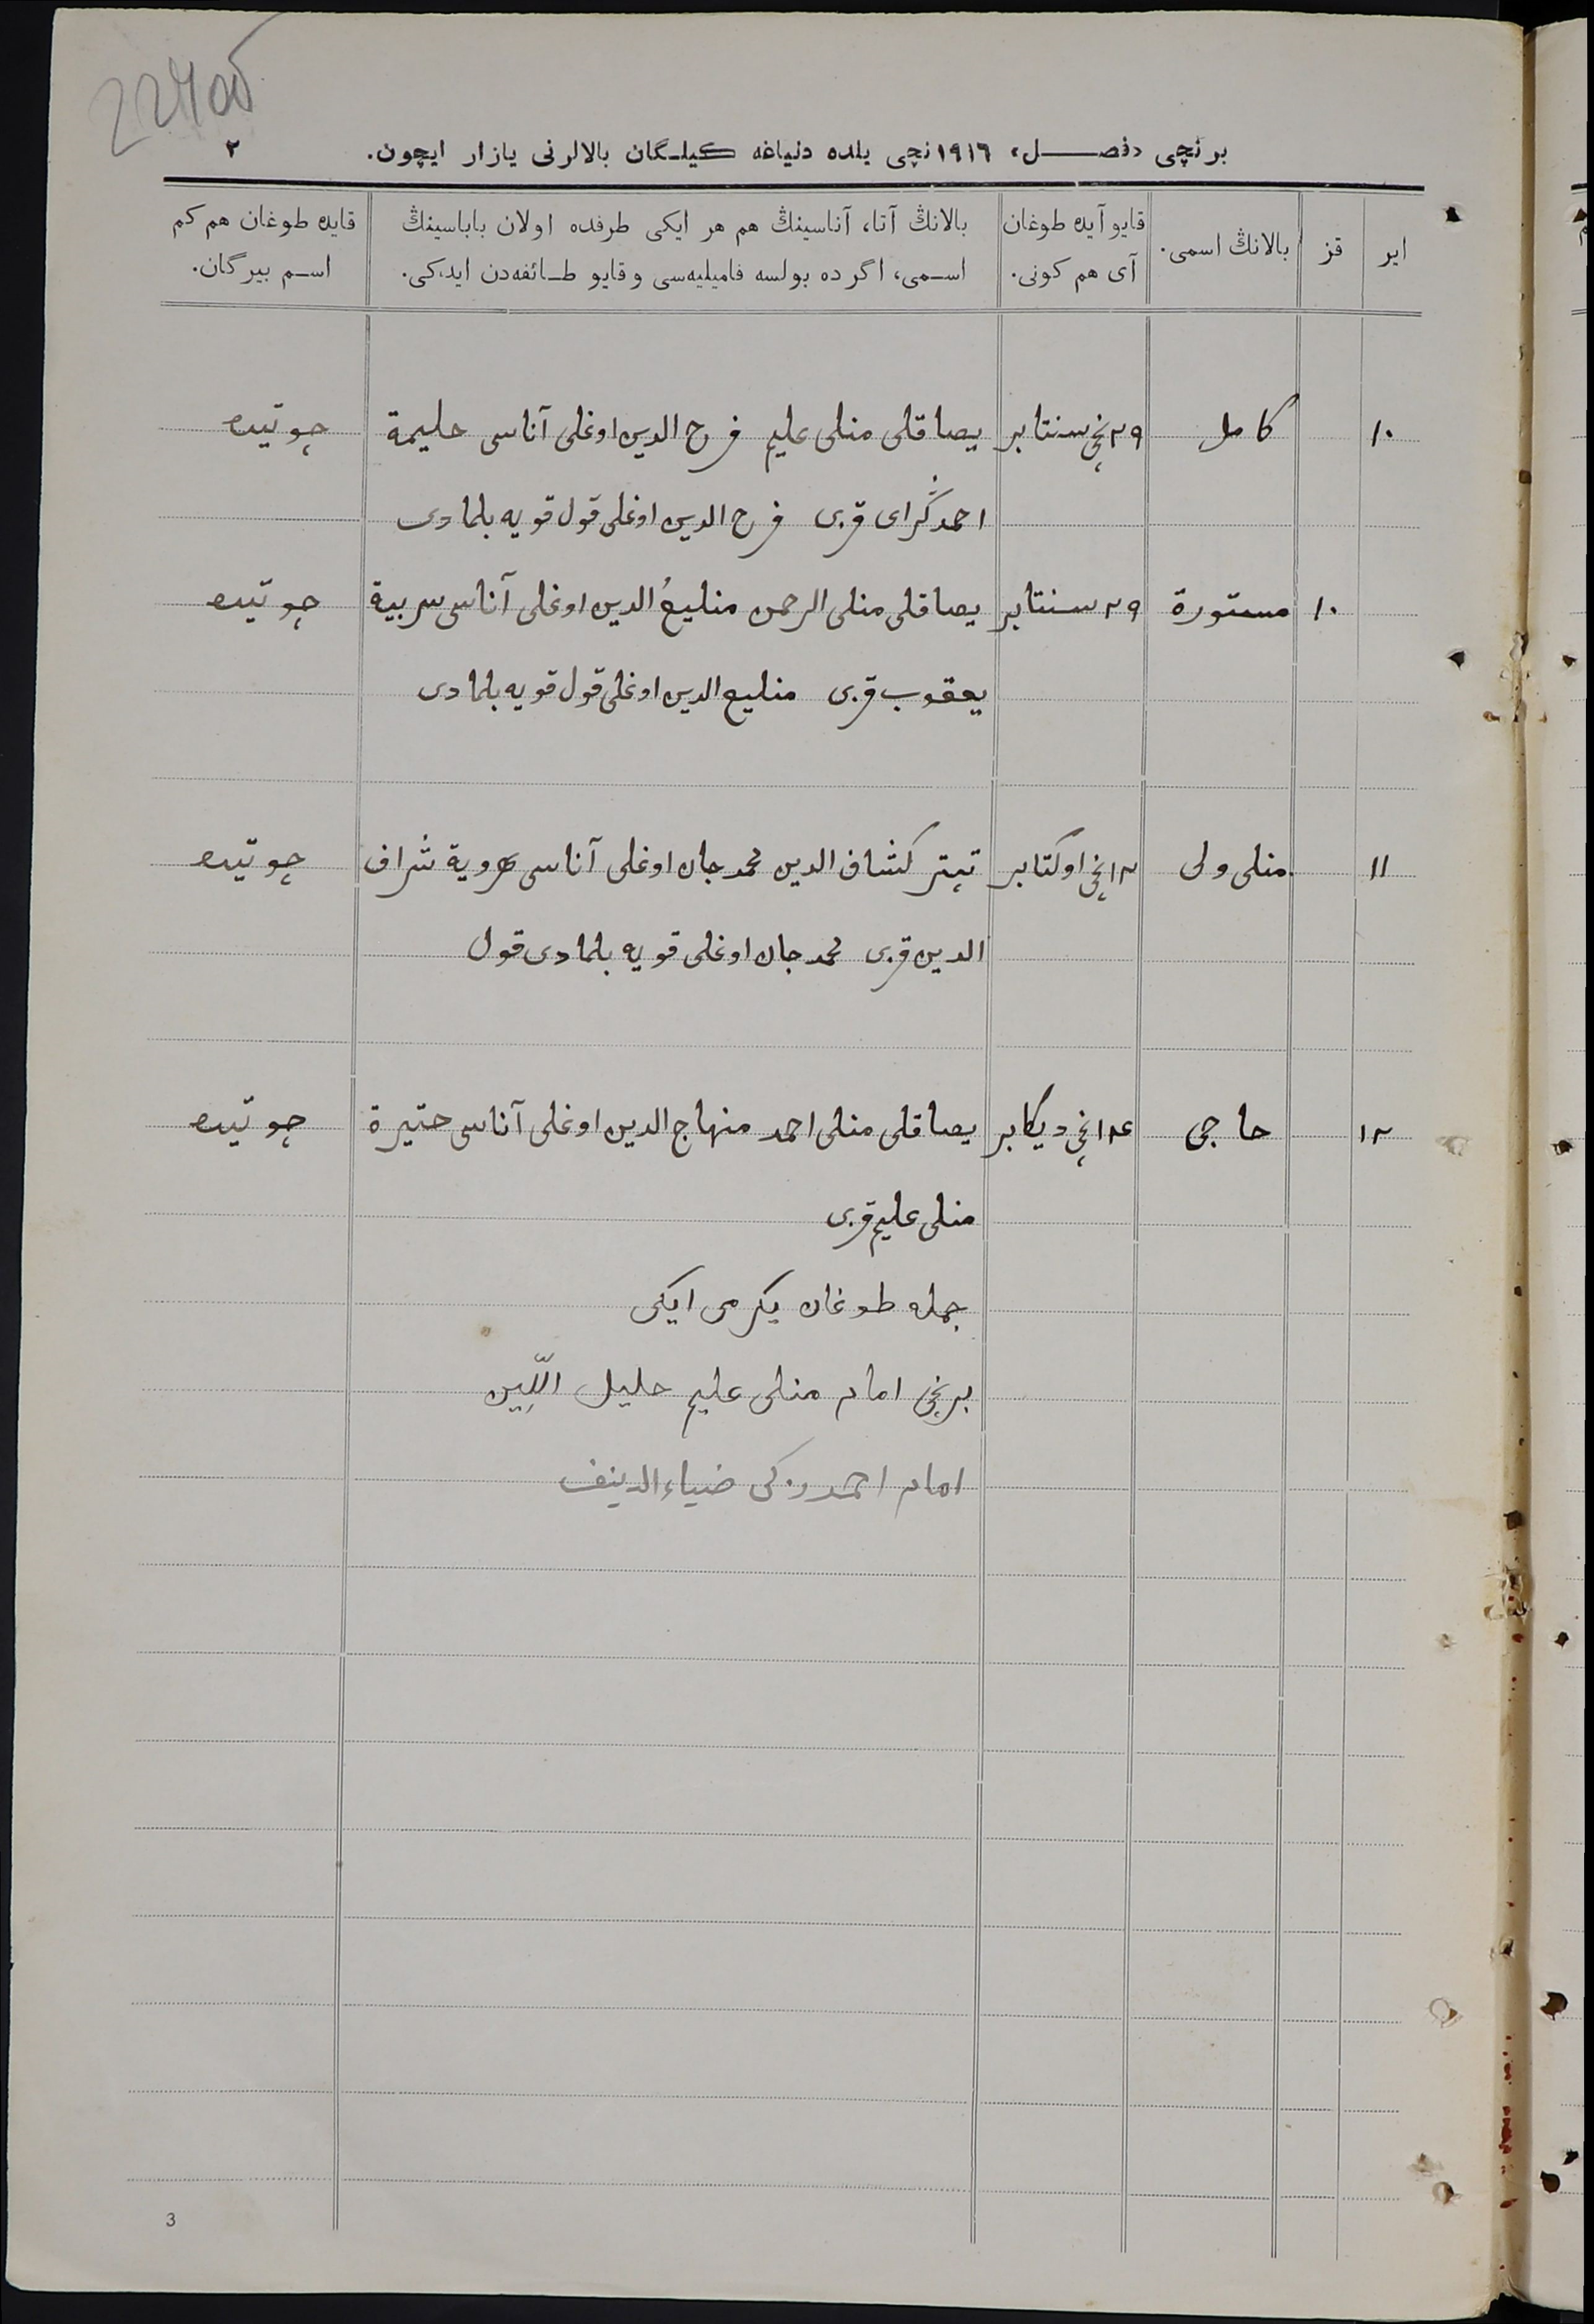 22400
برنچی «فصل» ١٩١٦نچی یلده دنیاغه کیلگان بالالرنی یازار ایچون. ٢
ایر قز بالانڭ اسمی. قایو آیده طوغان آی هم کونی. بالانڭ آتا، آناسینڭ هم هر ایکی طرفده اولان باباسینڭ اسمی، اگر ده بولسه فامیلیه‌سی و قایو طائفه‌دن ایدکی. قایده طوغان هم کم اسم بیرگان.
١٠ کامل ٢٩نچی سنتابر یصاقلی منلی علیم فرح الدین اوغلی آناسی حلیمة چوتیده
احمدگرای قزی فرح الدین اوغلی قول قویه بلمادی
١٠ مستورة ٢٩ سنتابر یصاقلی منلی الرحمن منلیع الدین اوغلی آناسی سربیة چوتیده
یعقوب قزی منلیع الدین اوغلی قول قویه بلمادی
١١ منلی ولی ١٢نچی اوکتابر تیتر کشاف الدین محمدجان اوغلی آناسی شراف چوتیده
الدین قزی محمدجان اوغلی قویه بلمادی قول
١٢ حاجی ١٢٤نچی دیکابر یصاقلی منلی احمد منهاج الدین اوغلی آناسی چوتیده
منلی علیم قزی
جمله طوغان یکرمی ایکی
برنچی امام منلی علیم خلیل
امام احمد زکی ضیاءالدینف
3